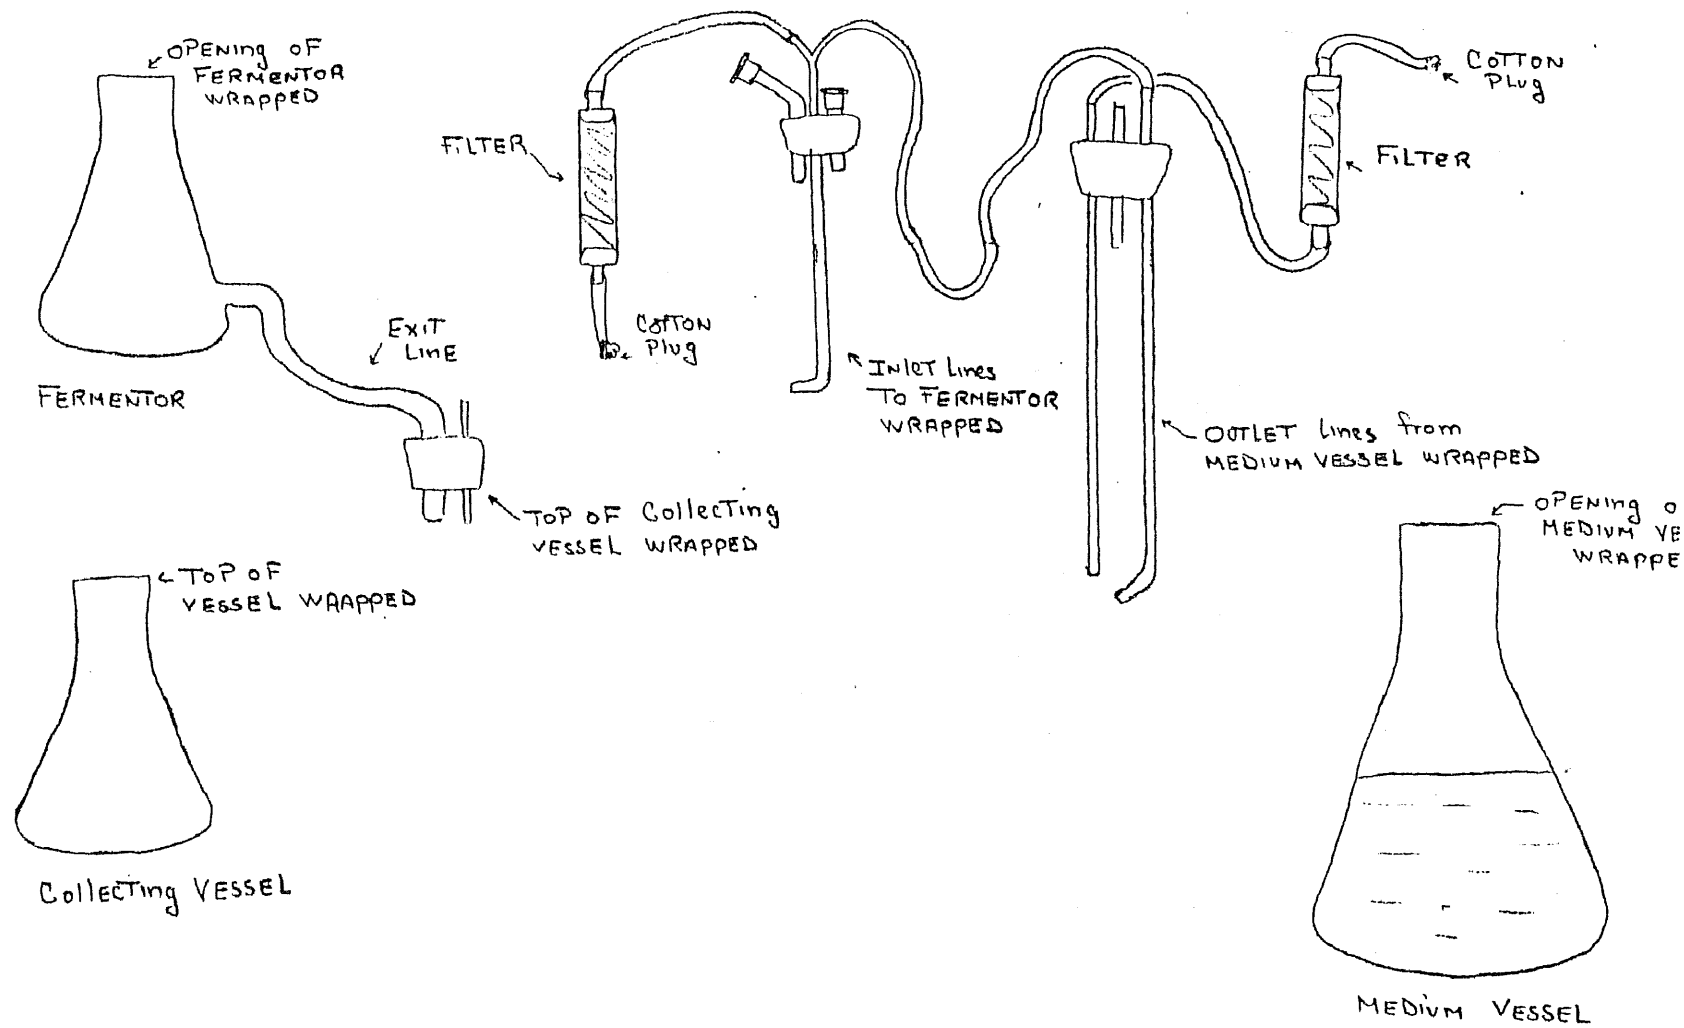 OPENING OF
FERMENTOR
WRAPPED
FILTER
COTTON
Plug
FILTER
EXIT
LINE
COTTON
Plug
FERMENTOR
INLET Lines
TO FERMENTOR
WRAPPED
OUTLET lines from
MEDIUM VESSEL WRAPPED
TOP OF Collecting
VESSEL WRAPPED
OPENING O
MEDIUM VE
WRAPPE
TOP OF
VESSEL WRAPPED
Collecting VESSEL
MEDIUM VESSEL